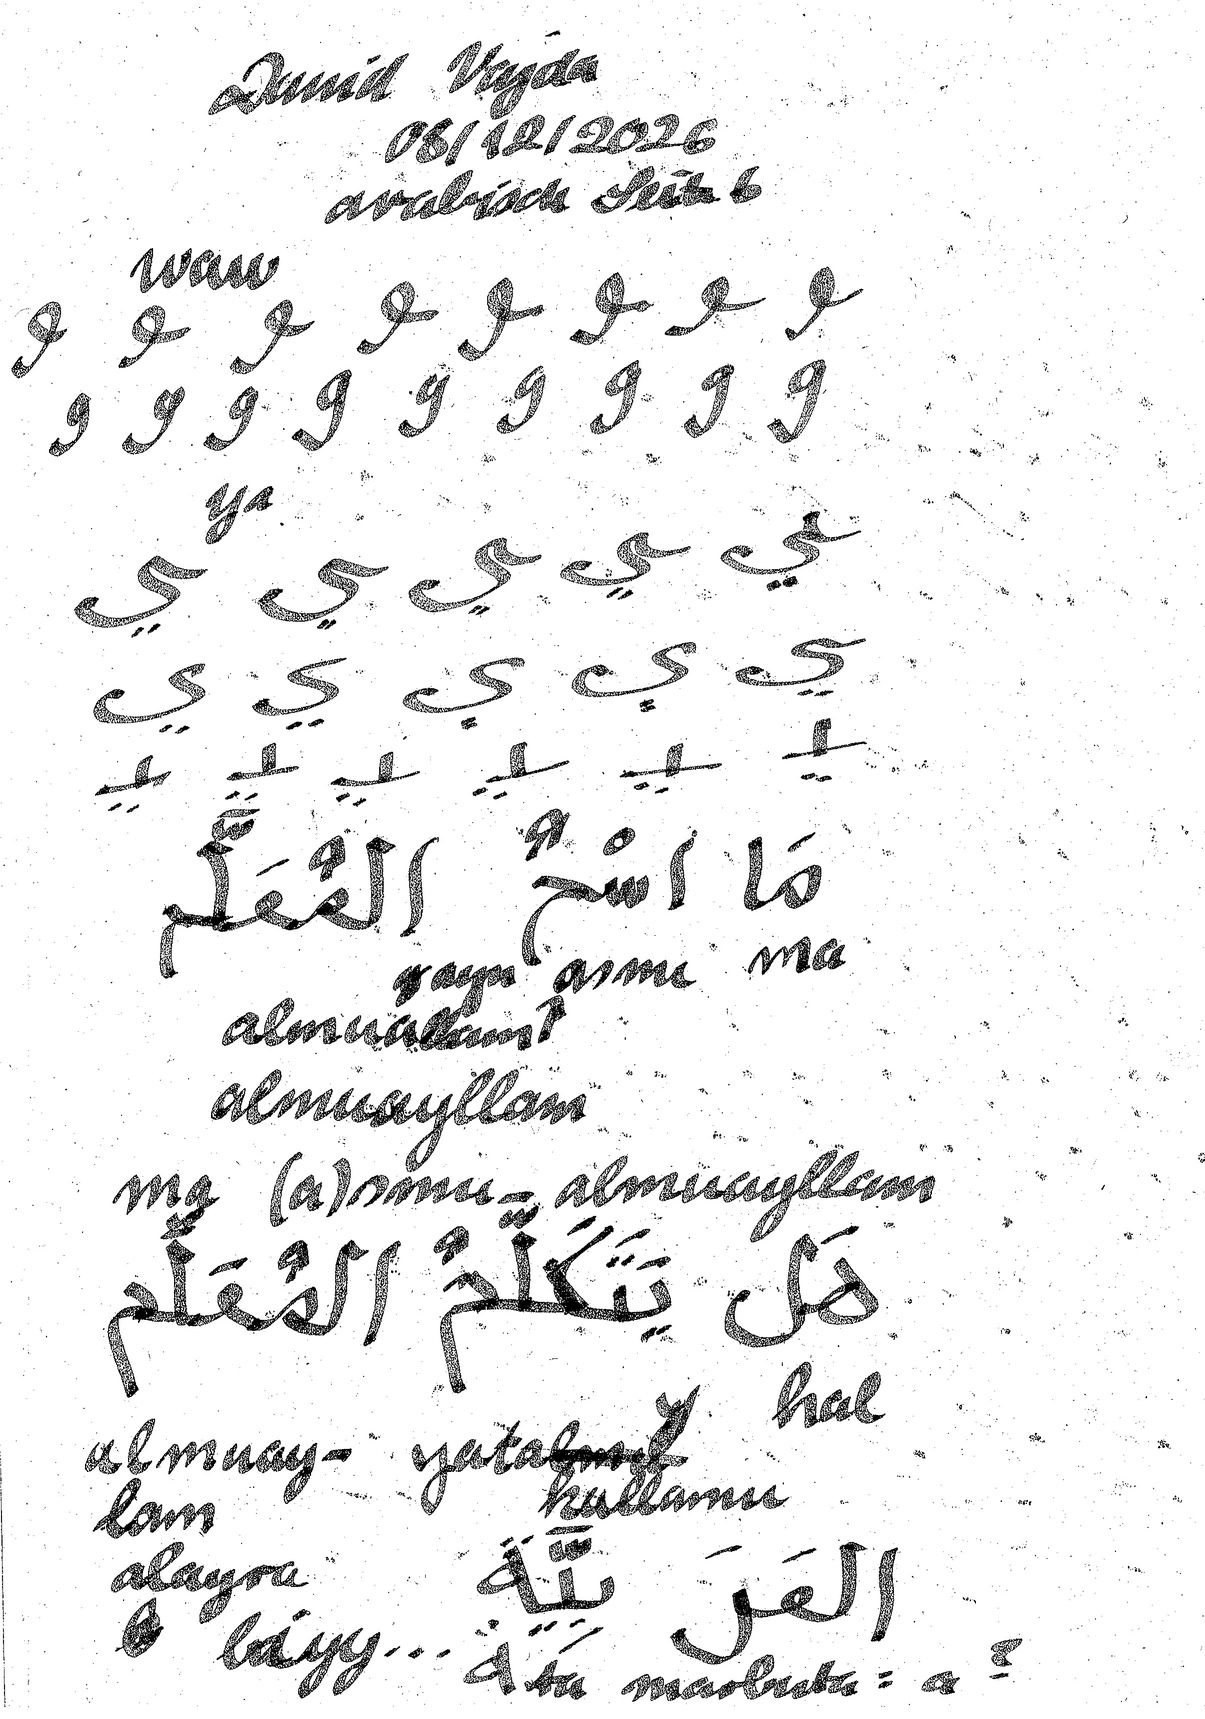 David Vajda
08/12/2026
arabisch Seite 6
waw
و و و و و و و و
و و و و و و و و و
ya
ي ي ي ي ي
ي ي ي ي ي
ـيـ ـيـ ـيـ ـيـ ـيـ ـيـ
مَا اسْمُ المُعَلَّم
ma asmu gayn
almuallam?
almuayllam
ma (a)smu- almuayllam
هَل يَتَكَلَّمُ المُعَلَّم
hal
almuay- yata
lam kullamu
العَرَ بِيَّة
alayra
biyy... ة ta marbuta = a